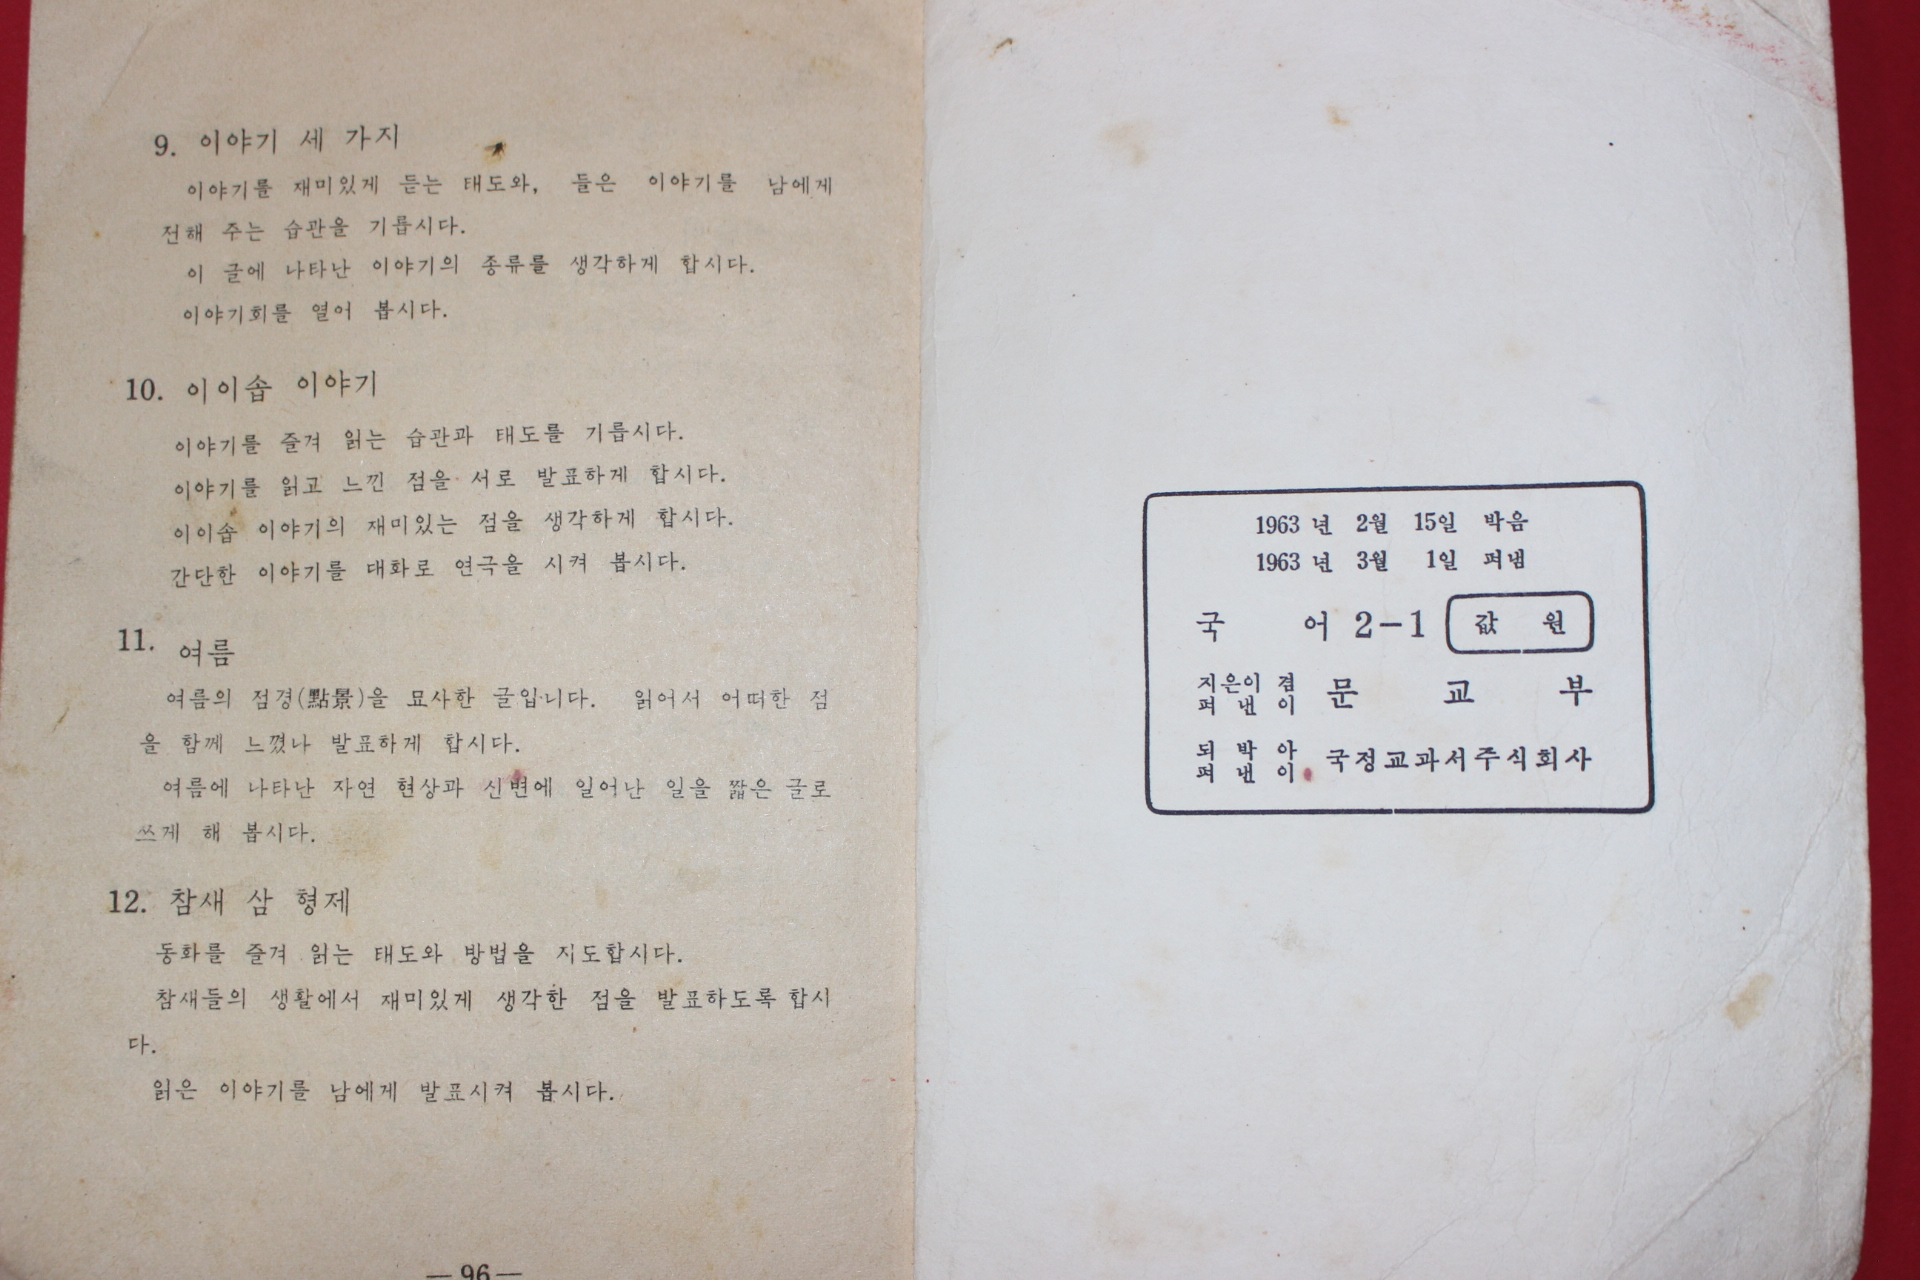 9. 이야기 세 가지
이야기를 재미있게 듣는 태도와, 들은 이야기를 남에게
전해 주는 습관을 기릅시다.
이 글에 나타난 이야기의 종류를 생각하게 합시다.
이야기회를 열어 봅시다.
10. 이이솝 이야기
이야기를 즐겨 읽는 습관과 태도를 기릅시다.
이야기를 읽고 느낀 점을 서로 발표하게 합시다.
이이솝 이야기의 재미있는 점을 생각하게 합시다.
간단한 이야기를 대화로 연극을 시켜 봅시다.
11. 여름
여름의 점경(點景)을 묘사한 글입니다. 읽어서 어떠한 점
을 함께 느꼈나 발표하게 합시다.
여름에 나타난 자연 현상과 신변에 일어난 일을 짧은 글로
쓰게 해 봅시다.
12. 참새 삼 형제
동화를 즐겨 읽는 태도와 방법을 지도합시다.
참새들의 생활에서 재미있게 생각한 점을 발표하도록 합시
다.
읽은 이야기를 남에게 발표시켜 봅시다.
—96—
1963 년 2월 15일 박음
1963 년 3월 1일 펴냄
국 어 2-1 값 원
지은이 겸
펴 낸 이 문 교 부
되 박 아
펴 낸 이 국정교과서주식회사